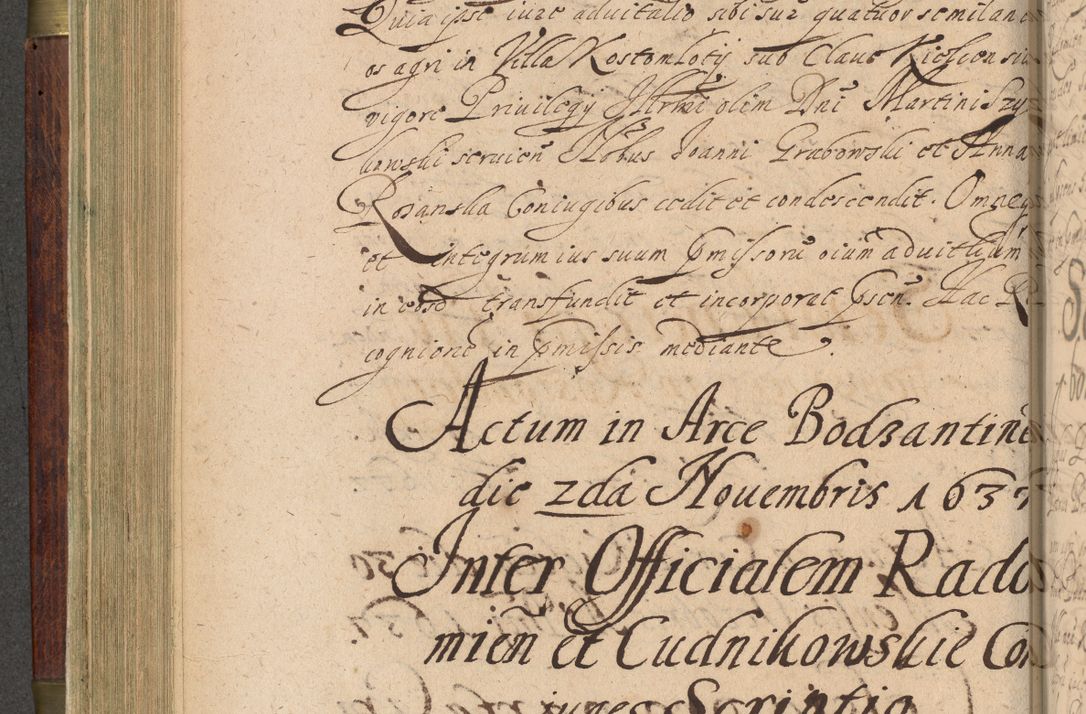 Quia ipse iure aduitalio sibi suz quatuor semilan
os agri in Villa Kostomloty sub Claue Kielcien si
vigore Priuilegÿ Illrmi olim Dni Martini Szy
kowski seruien Nobus Joanni Grabowski et Anna
Rosanska Coniugibus cedit et condescendit. Omne
et integrum ius suum pmissoru oium aduitlium
in eosd transfundit et incorporat psen. Hac Re
cognione in pmissis mediante.
Actum in Arce Bodzantine
die 2da Nouembris 1637
Inter Officialem Rado
mien et Cudnikowskie Con
iuges Scriptia